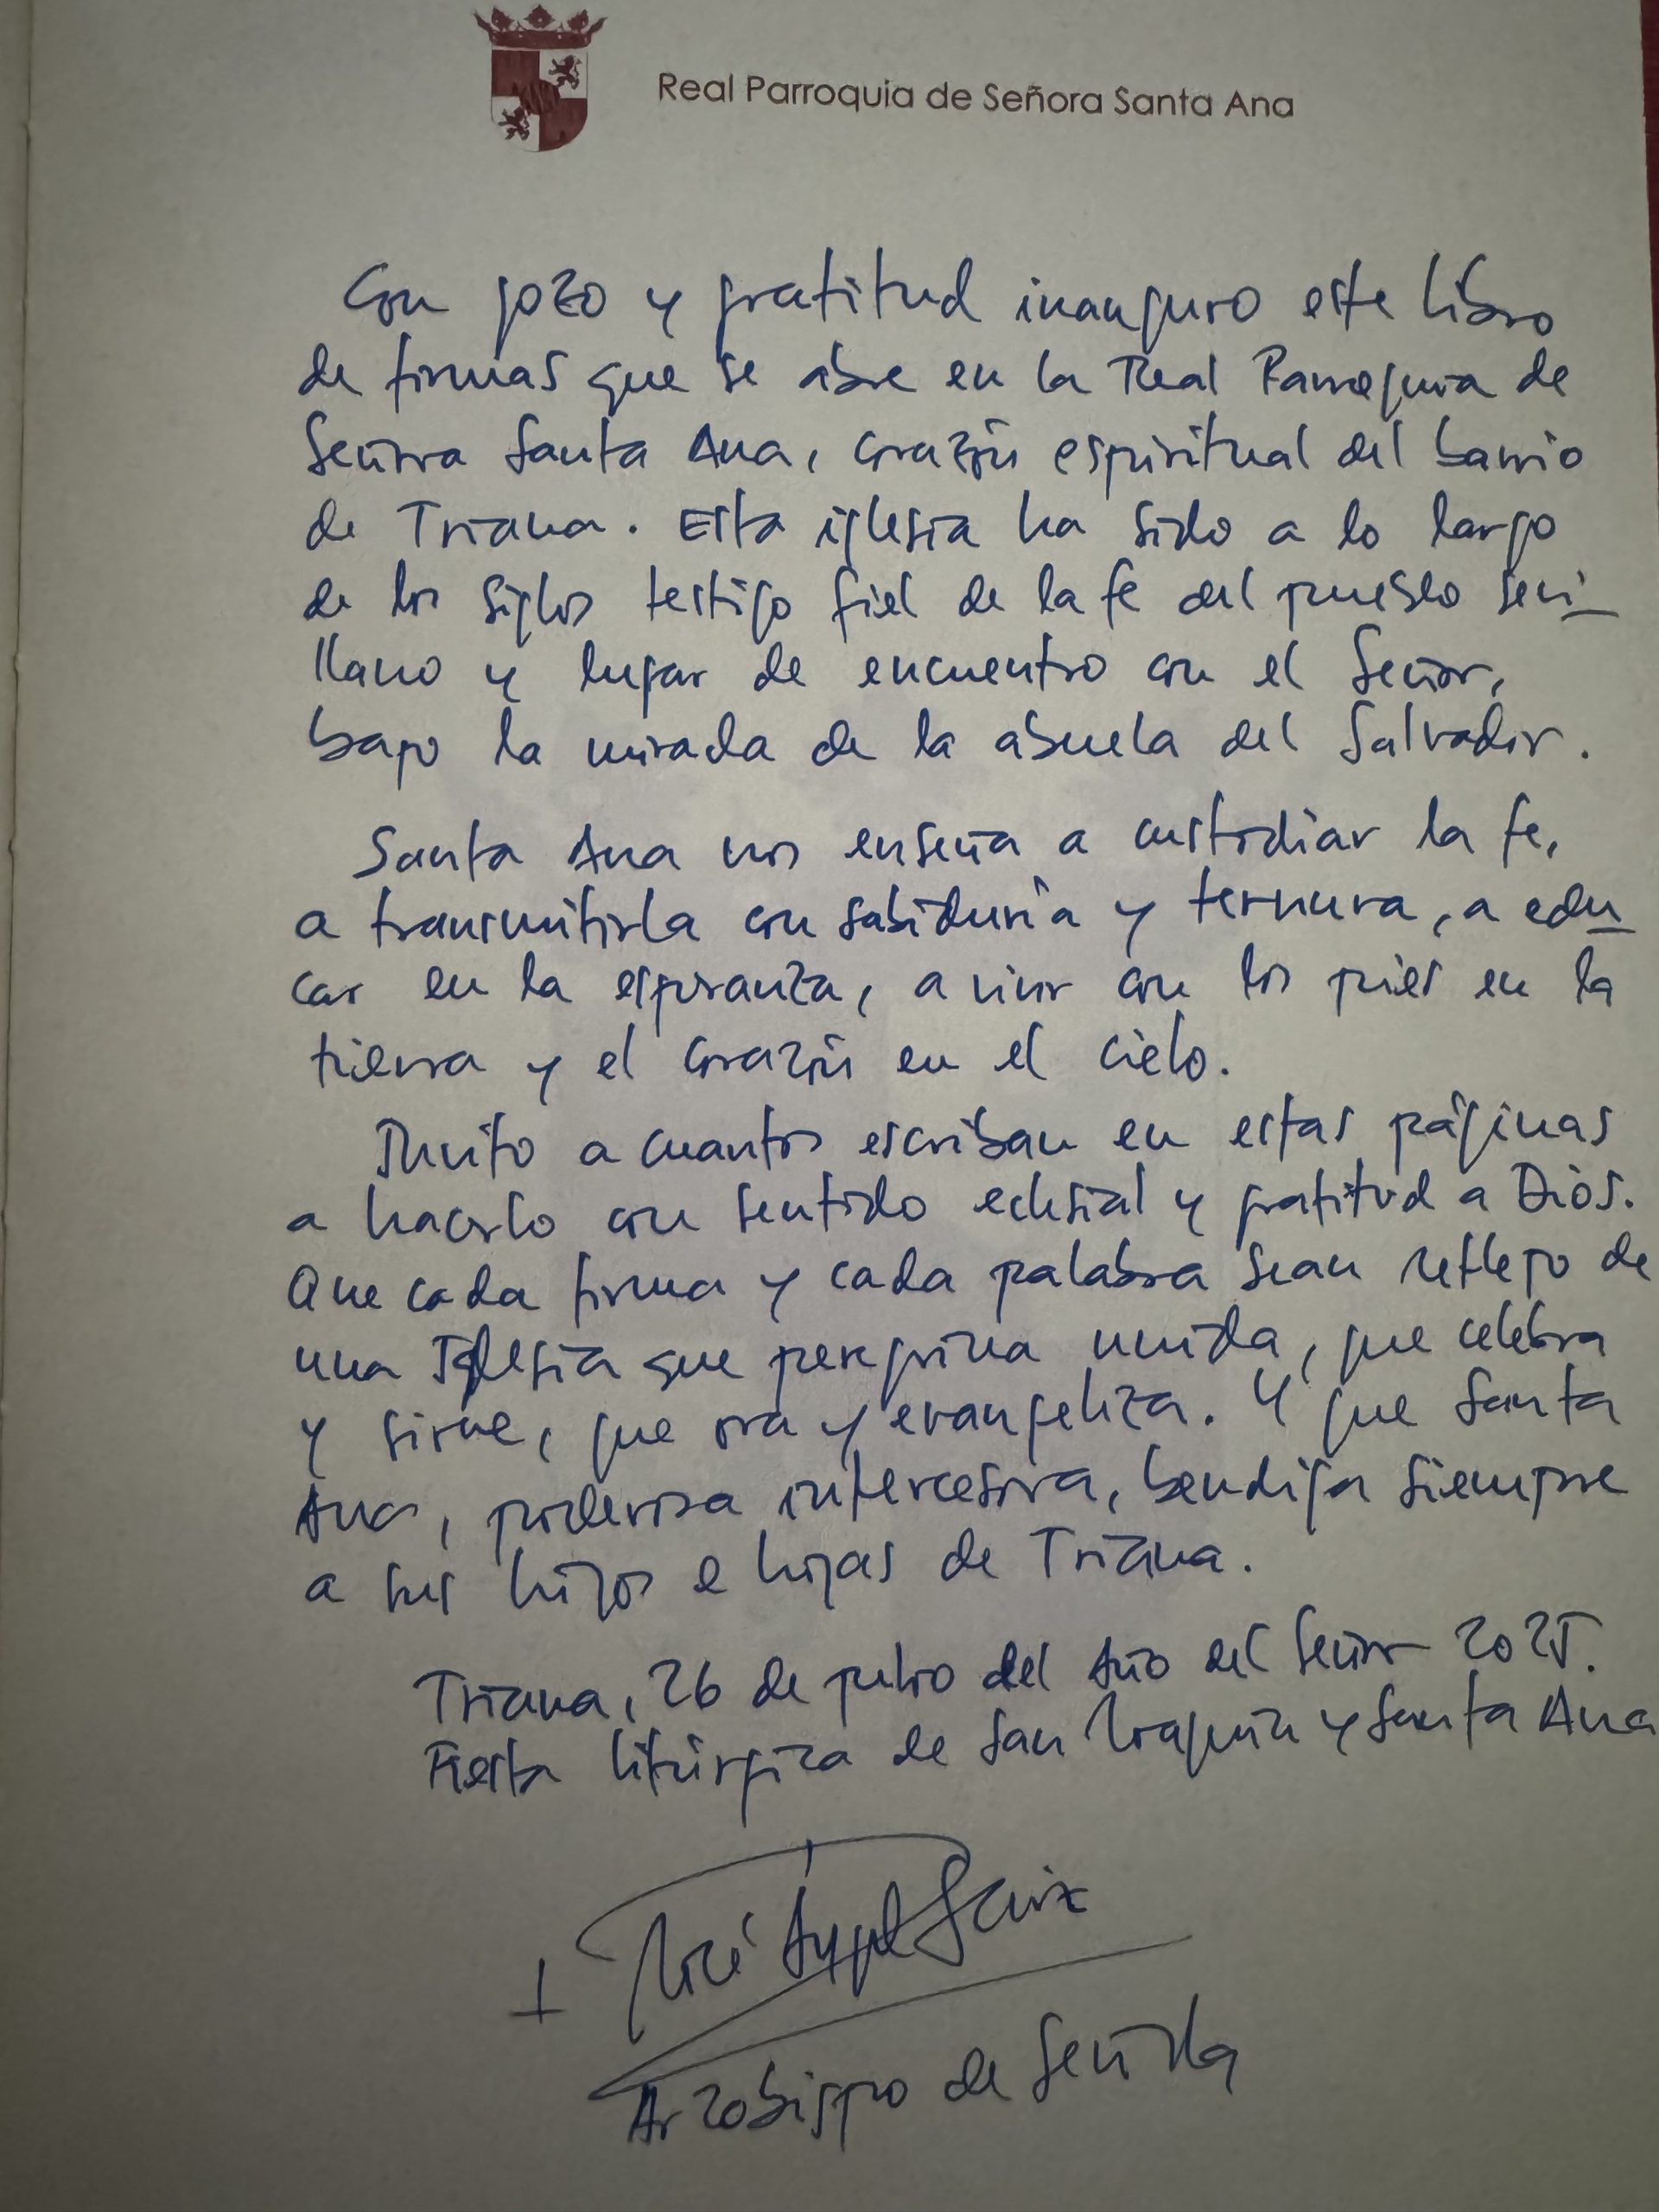 Real Parroquia de Señora Santa Ana
Con gozo y gratitud inauguro este libro
de firmas que se abre en la Real Parroquia de
Señora Santa Ana, corazón espiritual del barrio
de Triana. Esta iglesia ha sido a lo largo
de los siglos testigo fiel de la fe del pueblo sevi-
llano y lugar de encuentro con el Señor,
bajo la mirada de la abuela del Salvador.
Santa Ana nos enseña a custodiar la fe,
a transmitirla con sabiduría y ternura, a edu-
car en la esperanza, a vivir con los pies en la
tierra y el corazón en el cielo.
Invito a cuantos escriban en estas páginas
a hacerlo con sentido eclesial y gratitud a Dios.
Que cada firma y cada palabra sean reflejo de
una Iglesia que peregrina unida, que celebra
y sirve, que ora y evangeliza. Y que Santa
Ana, poderosa intercesora, bendiga siempre
a sus hijos e hijas de Triana.
Triana, 26 de julio del Año del Señor 2025.
Fiesta litúrgica de San Joaquín y Santa Ana
+ José Ángel Saiz
Arzobispo de Sevilla